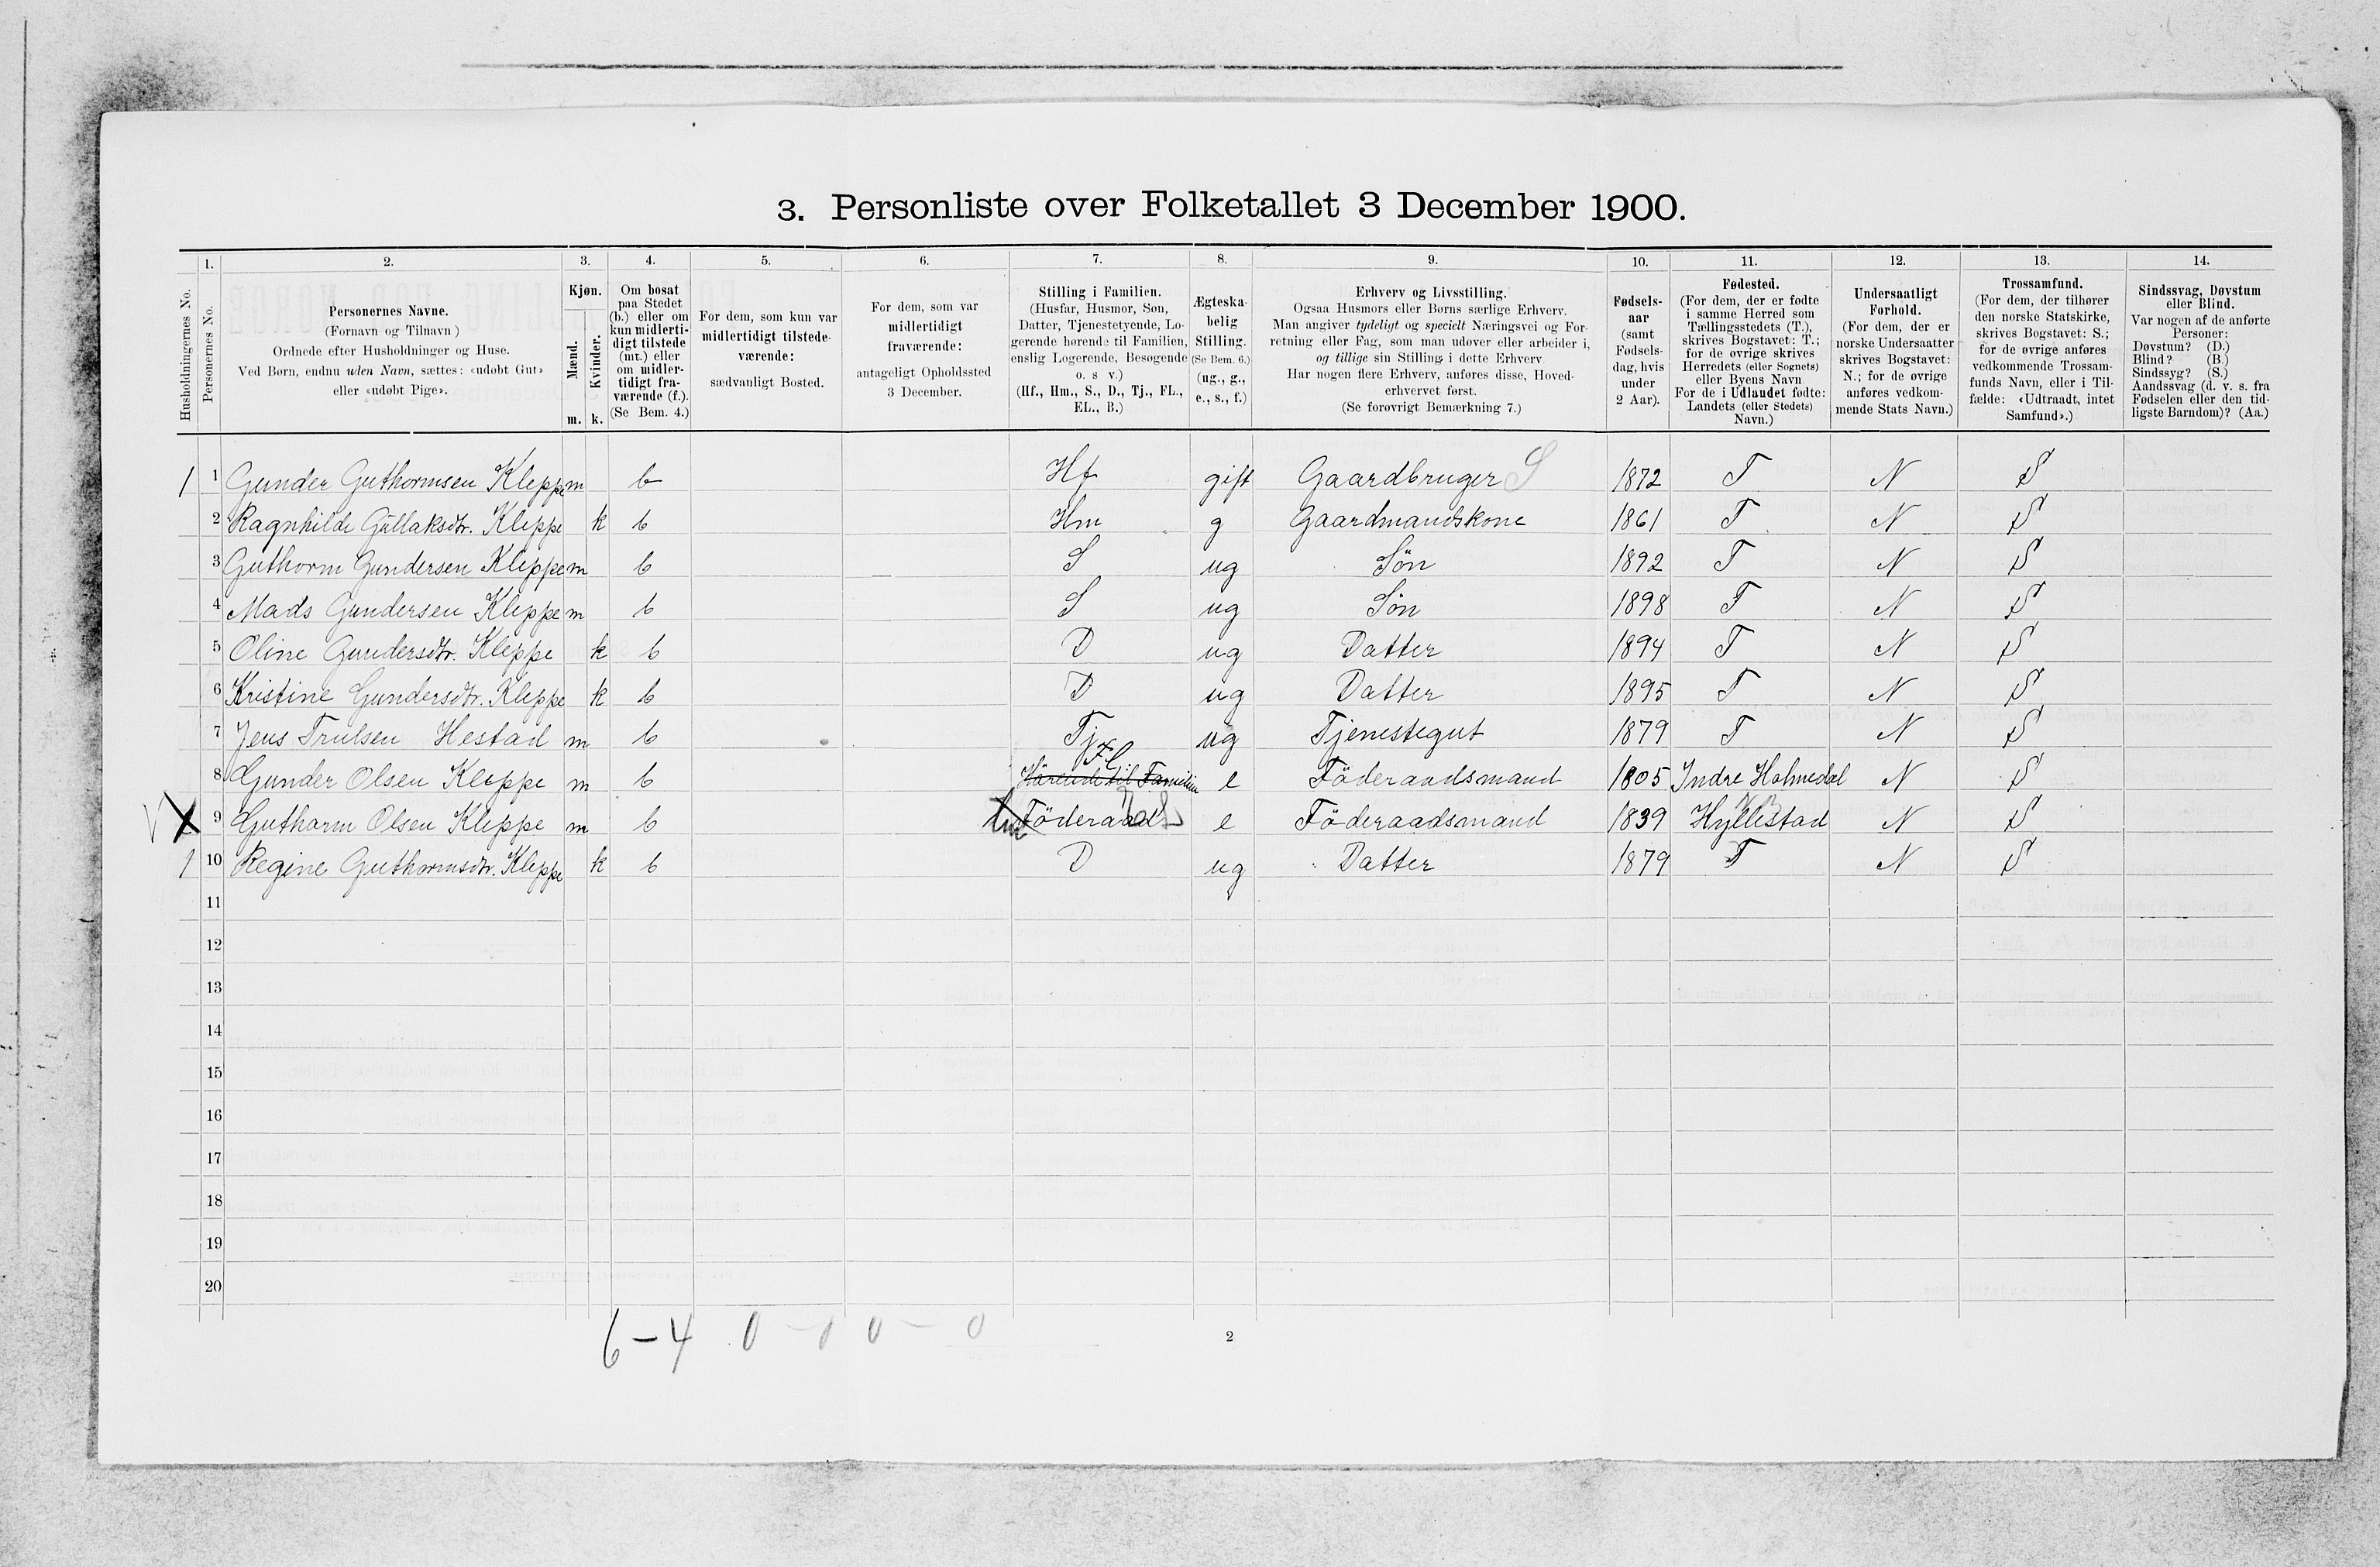 3. Personliste over Folketallet 3 December 1900.
1. 2. 3. 4. 5. 6. 7. 8. 9. 10. 11. 12. 13. 14.
Husholdningernes No.
Personernes No.
Personernes Navne.
(Fornavn og Tilnavn)
Ordnede efter Husholdninger og Huse.
Ved Børn, endnu uden Navn, sættes: «udøbt Gut»
eller «udøbt Pige».
Kjøn.
Mænd.
Kvinder.
m. k.
Om bosat
paa Stedet
(b.) eller om
kun midlerti-
digt tilstede
(mt.) eller
om midler-
tidigt fra-
værende (f.).
(Se Bem. 4.)
For dem, som kun var
midlertidigt tilstede-
værende:
sædvanligt Bosted.
For dem, som var
midlertidigt
fraværende:
antageligt Opholdssted
3 December.
Stilling i Familien.
(Husfar, Husmor, Søn,
Datter, Tjenestetyende, Lo-
gerende hørende til Familien,
enslig Logerende, Besøgende
o. s v.)
(Hf., Hm., S., D., Tj., FL.,
EL., B.)
Ægteska-
belig
Stilling.
(Se Bem. 6.)
(ug., g.,
e., s., f.)
Erhverv og Livsstilling.
Ogsaa Husmors eller Børns særlige Erhverv.
Man angiver tydeligt og specielt Næringsvei og For-
retning eller Fag, som man udøver eller arbeider i,
og tillige sin Stilling i dette Erhverv.
Har nogen flere Erhverv, anføres disse, Hoved-
erhvervet først.
(Se forøvrigt Bemærkning 7.)
Fødsels-
aar
(samt
Fødsels-
dag, hvis
under
2 Aar).
Fødested.
(For dem, der er fødte
i samme Herred som
Tællingsstedets (T.),
skrives Bogstavet: T.;
for de øvrige skrives
Herredets (eller Sognets)
eller Byens Navn
For de i Udlandet fødte:
Landets (eller Stedets)
Navn.)
Undersaatligt
Forhold.
(For dem, der er
norske Undersaatter
skrives Bogstavet:
N.; for de øvrige
anføres vedkom-
mende Stats Navn.)
Trossamfund.
(For dem, der tilhører
den norske Statskirke,
skrives Bogstavet: S.;
for de øvrige anføres
vedkommende Trossam-
funds Navn, eller i Til-
fælde: «Udtraadt, intet
Samfund».)
Sindssvag, Døvstum
eller Blind.
Var nogen af de anførte
Personer:
Døvstum? (D.)
Blind? (B.)
Sindssyg? (S.)
Aandssvag (d. v. s. fra
Fødselen eller den tid-
ligste Barndom)? (Aa.)
1 1 Gunder Guthormsen Kleppe m b Hf gift Gaardbruger S 1872 T N S
2 Ragnhilde Gullaksdtr. Kleppe k b Hm g Gaardmandskone 1861 T N S
3 Guthorm Gundersen Kleppe m b S ug Søn 1892 T N S
4 Mads Gundersen Kleppe m b S ug Søn 1898 T N S
5 Oline Gundersdtr. Kleppe k b D ug Datter 1894 T N S
6 Kristine Gundersdtr. Kleppe k b D ug Datter 1895 T N S
7 Jens Trulsen Hestad m b Tj ug Tjenestegut 1879 T N S
8 Gunder Olsen Kleppe m b Hörende til Familien e Föderaadsmand 1805 Indre Holmedal N S
X 9 Guthorm Olsen Kleppe m b Föderaad e Föderaadsmand 1839 Hyllestad N S
1 10 Regine Guthormsdtr. Kleppe k b D ug Datter 1879 T N S
11
12
13
14
15
16
17
18
19
20
6-4 0 - 0 0 - 0
2